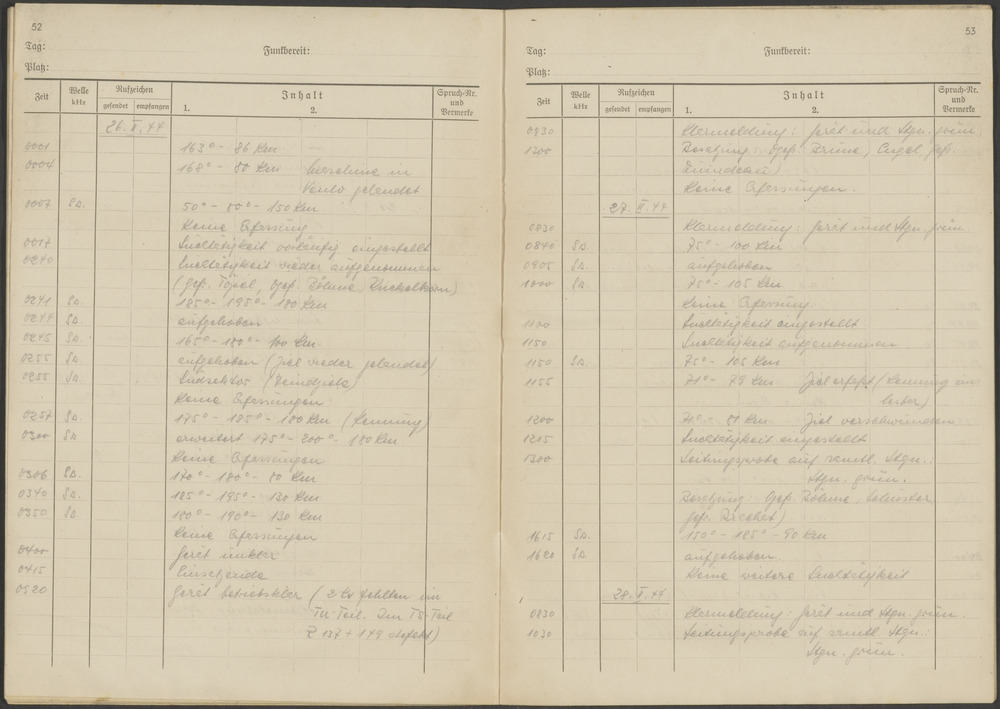 52
Tag:
Funkbereit:
Platz:
Zeit
Welle kHz
Rufzeichen
gesendet
empfangen
Inhalt
1.
2.
Spruch-Nr. und Vermerke
26. II. 44
0001 163° - 86 Km
0004 168° - 80 Km Maschine in
Venlo gelandet
0007 Sa. 50° - 80° - 150 Km
Keine Erfassung
0017 Suchtätigkeit vorläufig eingestellt
0240 Suchtätigkeit wieder aufgenommen
(Gefr. , Ogefr. Böhme, )
0241 Sa. 185° - 195° - 180 Km
0244 Sa. aufgehoben
0245 Sa. 165° - 180° - 100 Km
0255 Sa aufgehoben (Ziel wieder gelandet)
0255 Sa. Suchsektor (Feindziele)
Keine Erfassungen
0257 Sa. 175° - 185° - 180 Km (Kennung)
0300 Sa erweitert 175° - 200° - 180 Km
Keine Erfassungen
0306 Sa. 170° - 180° - 80 Km
0340 Sa. 185° - 195° - 130 Km
0350 Sa. 180° - 190° - 130 Km
Keine Erfassungen
0400 Gerät unklar
0415
0520 Gerät betriebsklar (2 fehlten im
TU-Teil. Im TS-Teil
R 137 + 149 defekt)
53
Tag:
Funkbereit:
Platz:
Zeit
Welle kHz
Rufzeichen
gesendet
empfangen
Inhalt
1.
2.
Spruch-Nr. und Vermerke
0930 Klarmeldung: Gerät und Stgn. grün.
1200 Besetzung: Ogefr. Brüne, Engel, Gefr.
Keine Erfassungen.
27. II. 44
0830 Klarmeldung: Gerät und Stgn. grün.
0840 Sa. 75° - 100 Km
0905 Sa. aufgehoben
1000 Sa. 75° - 105 Km
Keine Erfassung
1100 Suchtätigkeit eingestellt
1150 Suchtätigkeit aufgenommen
1150 Sa. 75° - 105 Km
1155 71° - 79 Km Ziel erfaßt (Kennung im
)
1200 - 81 Km Ziel verschwunden
1205 Suchtätigkeit eingestellt
1300 Leitungsprobe auf sämtl. Stgn.:
Stgn. grün.
Besetzung: Gefr. Böhme,
Gefr. )
1615 Sa. 150° - 185° - 90 Km
1620 Sa aufgehoben.
Keine weitere Suchtätigkeit
28. II. 44
0830 Klarmeldung: Gerät und Stgn. grün.
1030 Leitungsprobe auf sämtl. Stgn.:
Stgn. grün.